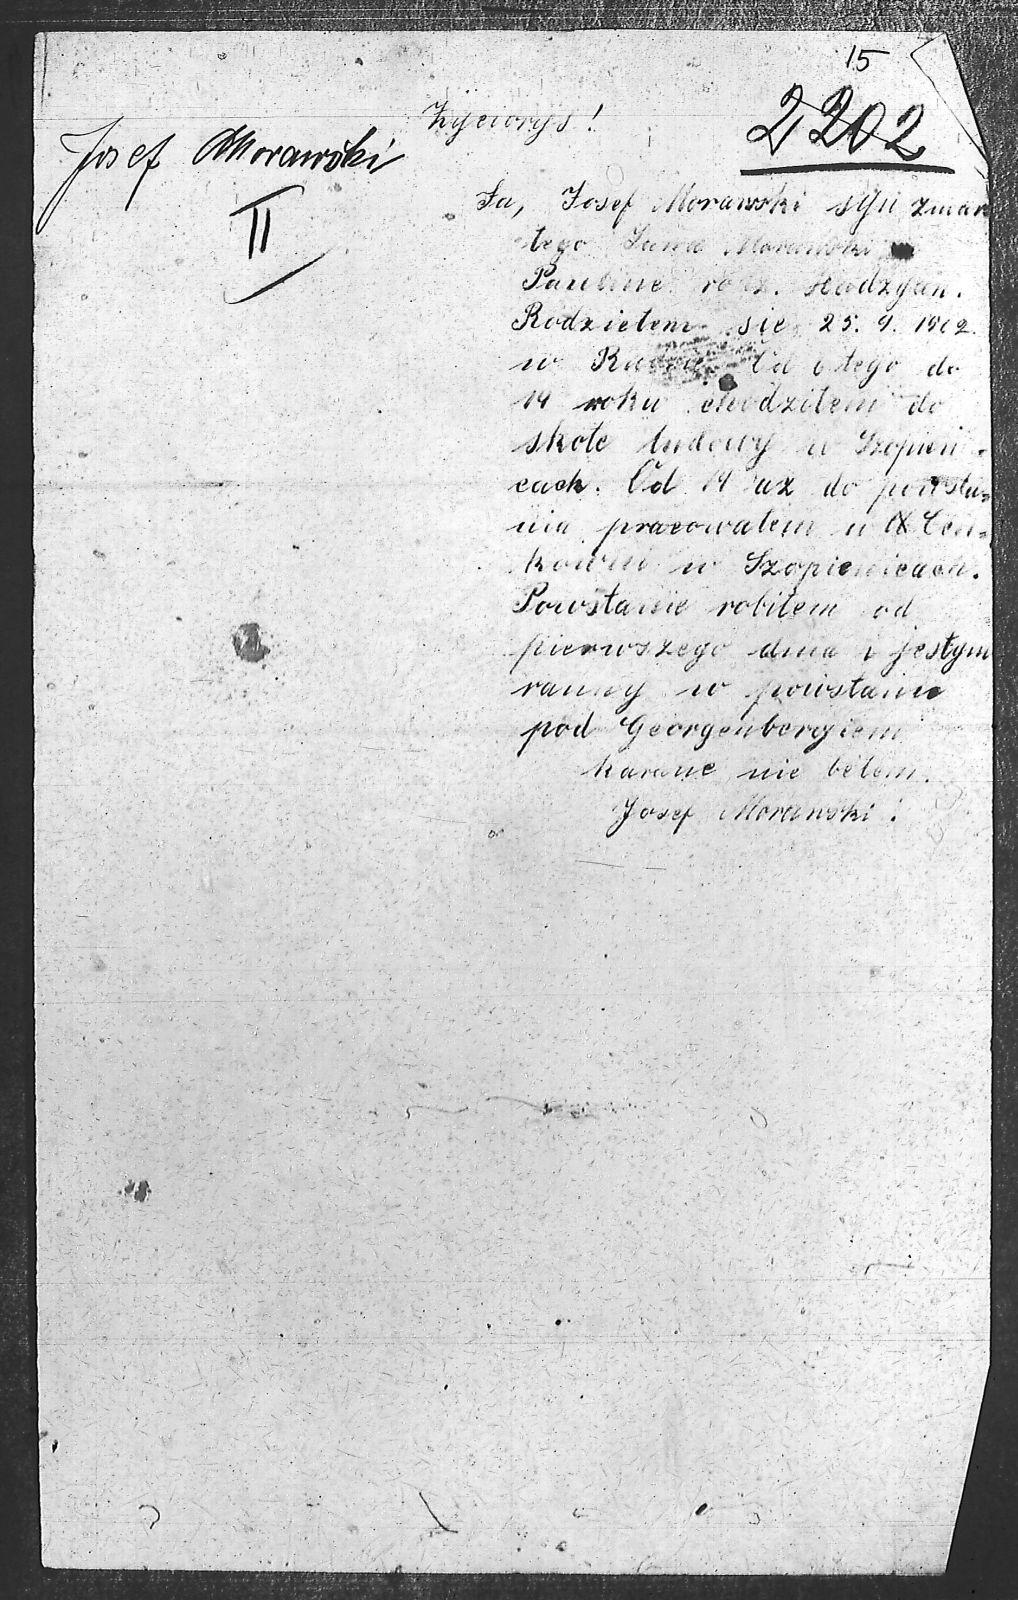 15
2202
Życiorys!
Josef Morawski
II
Ja, Josef Morawski syn zmar
tego Jana Morawski
Pauline rodz. Hadzyan.
Rodzielem sie 25. 9. 1902
w od 6 tego do
14 roku chodzilem do
skole ludowy w Szopieni-
cach. Od 14 uz do powsta-
nia pracowalem w Cen-
kowni w Szopienicach.
Powstanie robilem od
pierwszego dnia i jestym
ranny w powstanie
pod Georgenbergiem
karane nie belem.
Josef Morawski!